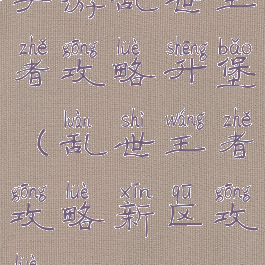 手游乱世王
zhě gōng lüè shēng bǎo
者攻略升堡
luàn shì wáng zhě
（乱世王者
gōng lüè xīn qū gōng
攻略新区攻
lüè